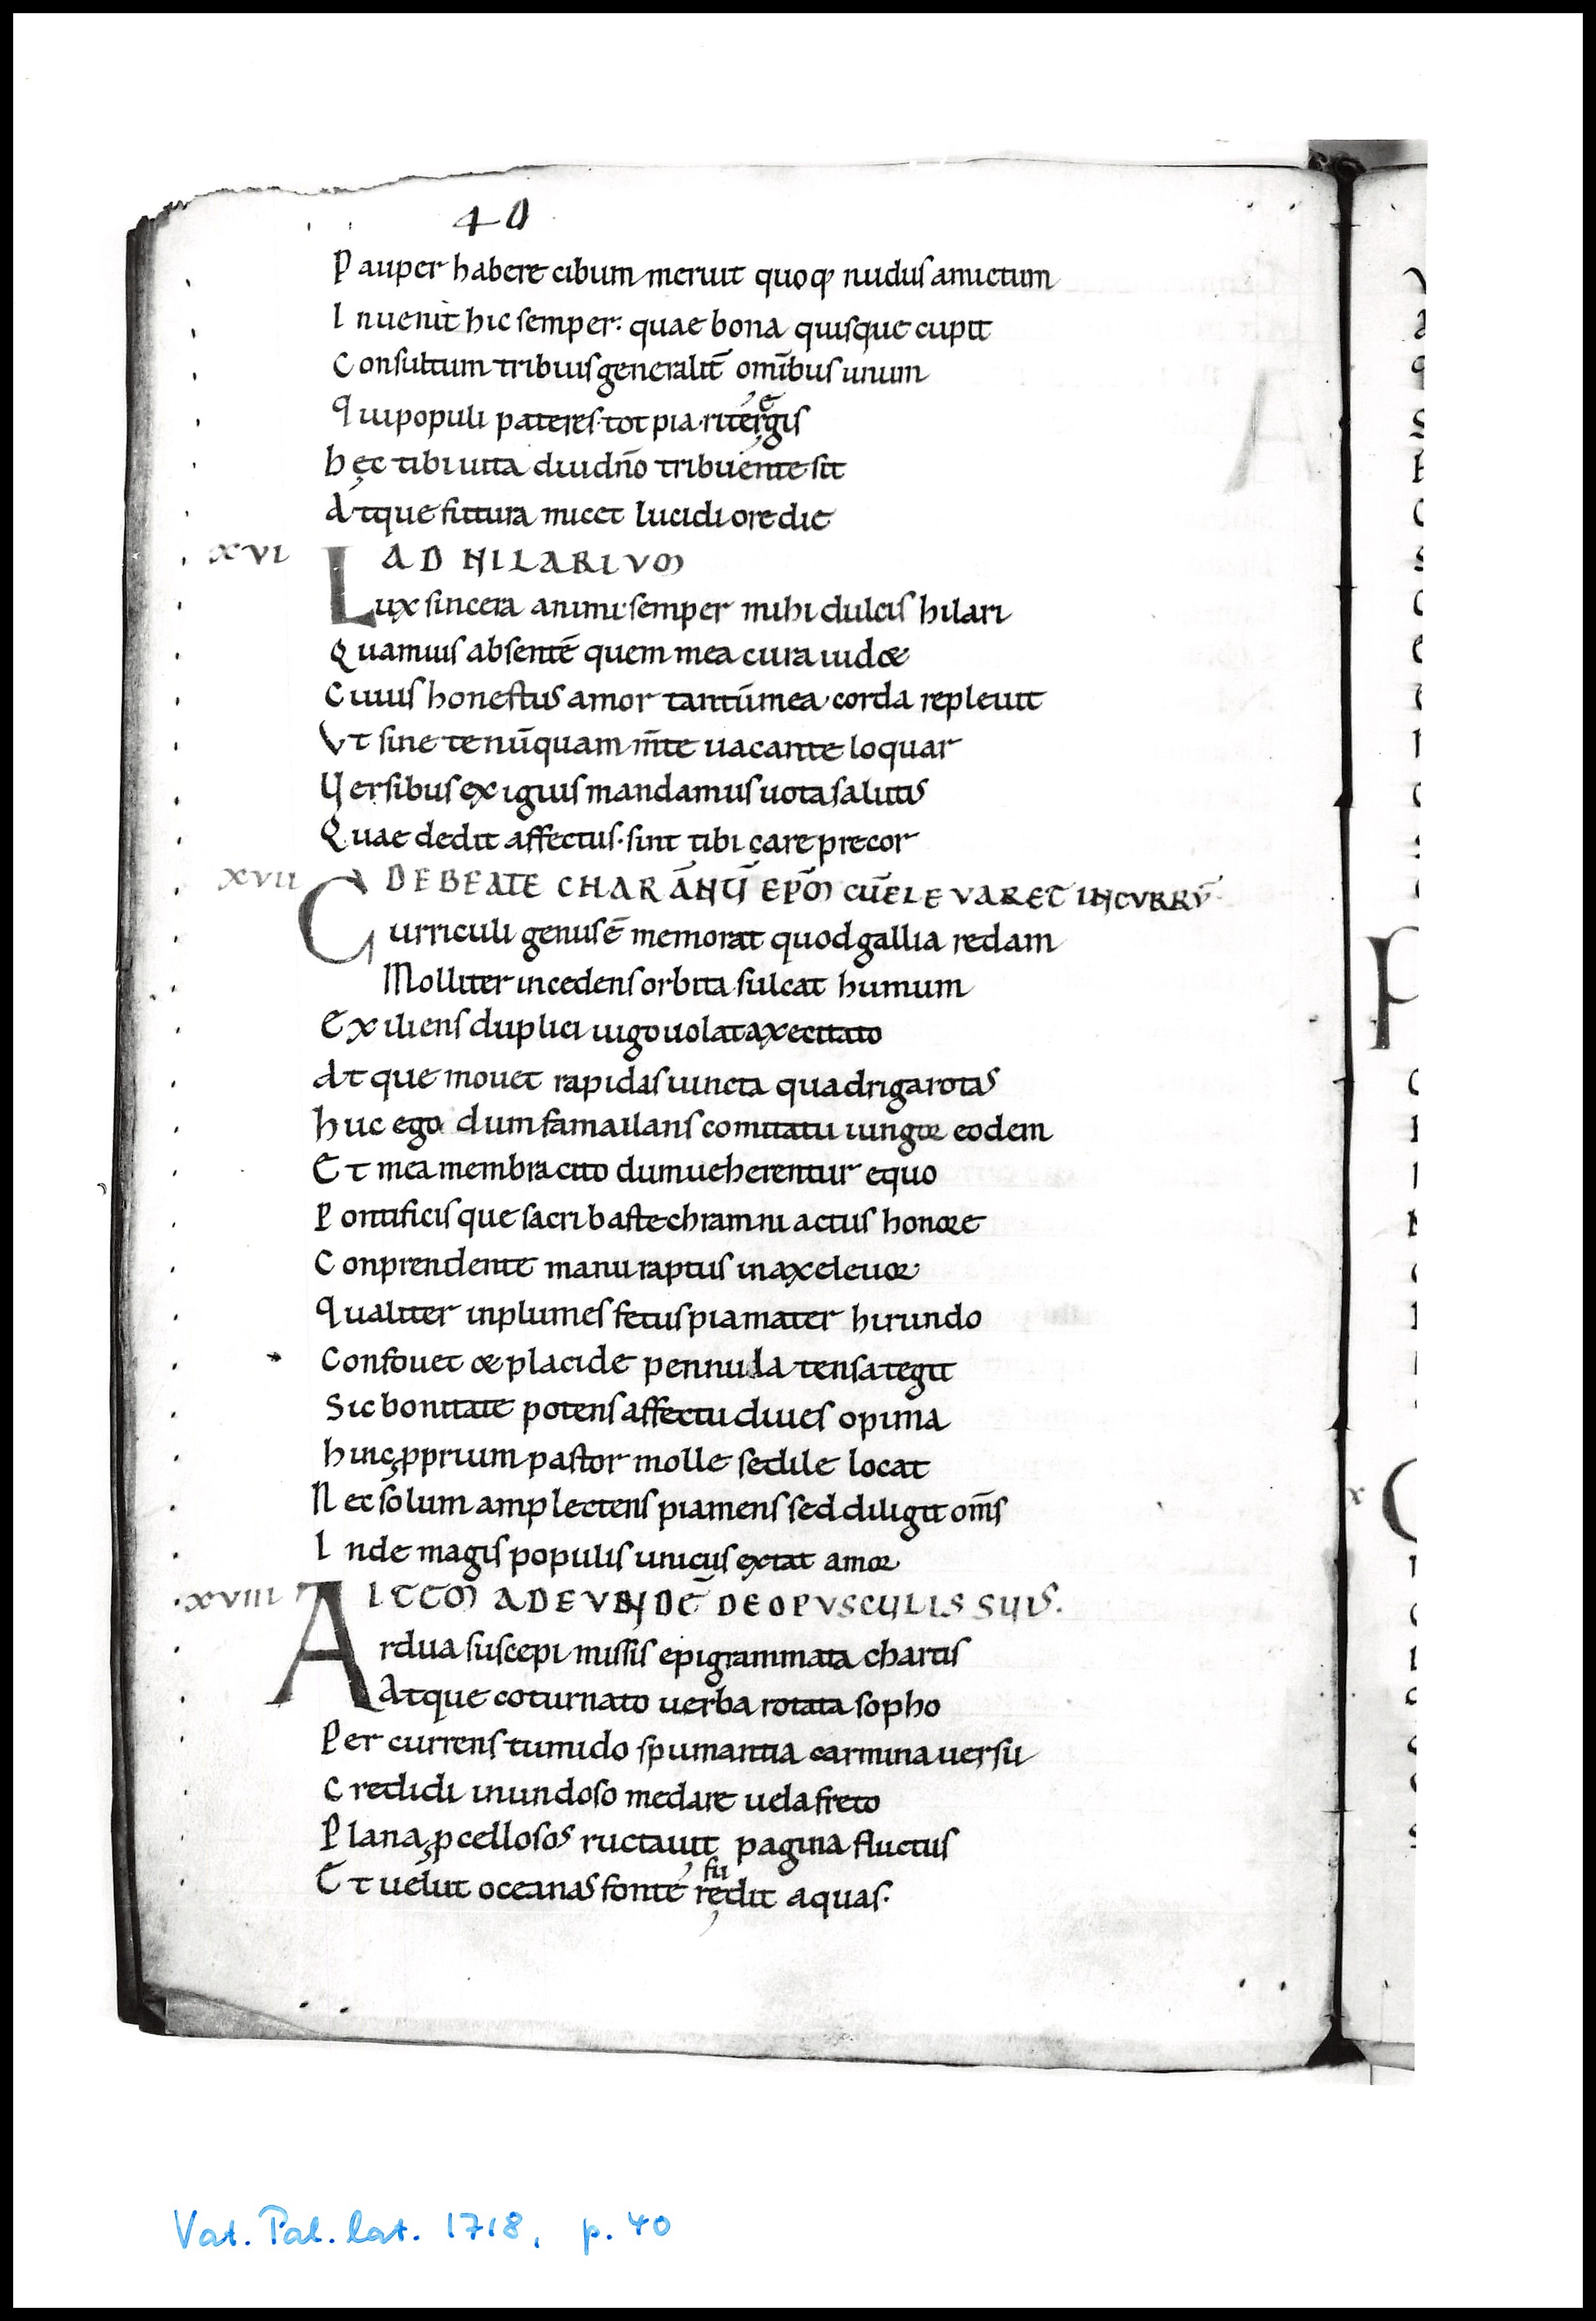 40
Pauper habere cibum meruit quoq; nudus amictum
Inuenit hic semper: quae bona quisque cupit
Consultum tribuis generalit̄ om̄ibus unum
Qui populi pater es· tot pia rite e rgis
hęc tibi uita diu dn̄o tribuente sit
Atque futura micet lucidiore die
XVI AD HILARIUM
Lux sincera animi· semper mihi dulcis hilari
Quamuis absentē quem mea cura uidet
Cuius honestus amor tantū mea corda repleuit
Vt sine te nūquam m̄te uacante loquar
Versibus exiguis mandamus uota salutis
Quae dedit affectus· sint tibi care precor
XVII DE BEATE CHARĀNŪ EPM̄ CŪ ELEVARET IN CVRRŪ
Curriculi genus ē memorat quod gallia redam
Molliter incedens orbita sulcat humum
Exiliens duplici iugo uolat axe citato
Atque mouet rapidas iuncta quadriga rotas
huc ego dum famailans comitatu iungor eodem
Et mea membra cito dum ueherentur equo
Pontificisque sacri baste chramni actus honore
Conprendente manu raptus in axe leuor
Qualiter inplumes fetus pia mater hirundo
Confouet et placide pennula tensa tegit
Sic bonitate potens affectu diues opima
hinc p̱prium pastor molle sedile locat
Nec solum amplectens pia mens sed diligit om̄s
Inde magis populis unicus extat amor
XVIII ITEM AD EVNDĒ DE OPVSCULIS SUIS·
Ardua suscepi missis epigrammata chartis
Atque coturnato uerba rotata sopho
Percurrens tumido spumantia carmina uersu
Credidi in undoso me dare uela freto
Plana p̱cellosos ructauit pagina fluctus
Et uelut oceanas fonte su redit aquas·
Vat. Pal. lat. 1718, p. 40